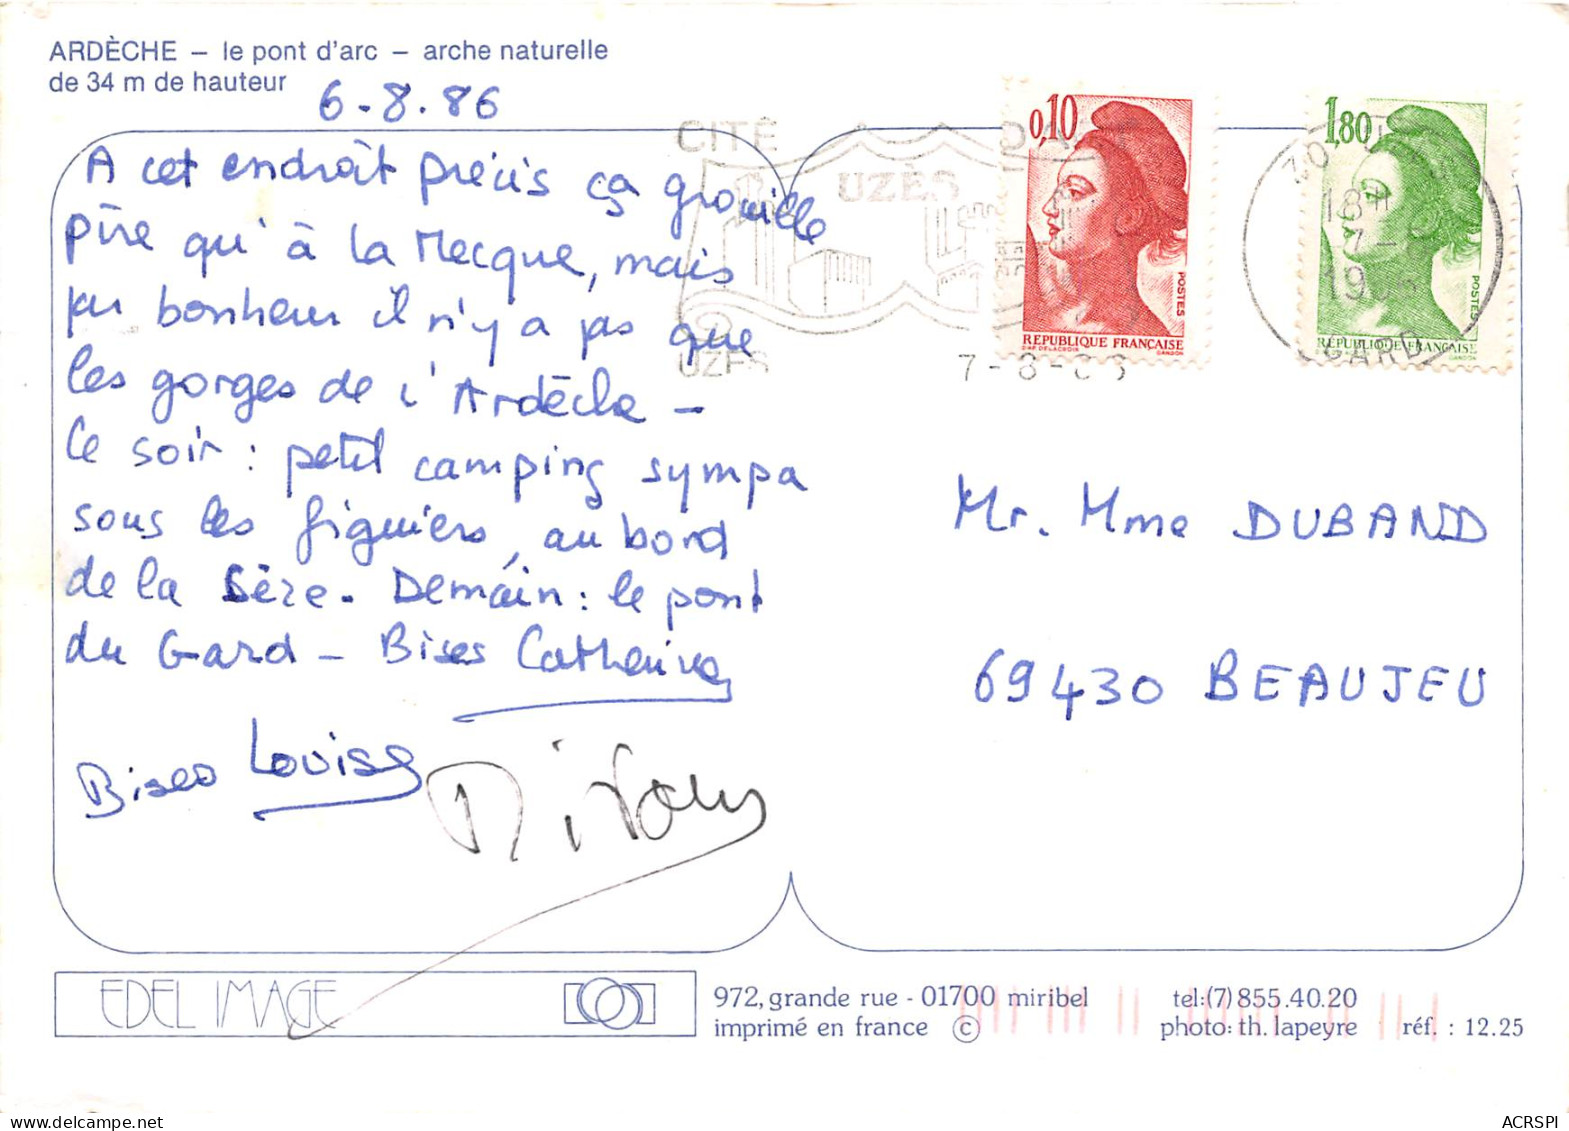 ARDÈCHE – le pont d'arc – arche naturelle
de 34 m de hauteur
6-8.86
A cet endroit précis ça grouille
pire qu'à la Mecque, mais
par bonheur il n'y a pas que
les gorges de l'Ardèche –
Ce soir : petit camping sympa
sous les figuiers, au bord
de la Cèze. Demain : le pont
du Gard – Bises Catherine
Bises Louise
CITÉ
UZÈS
UZÈS
7-8-86
0,10
POSTES
REPUBLIQUE FRANÇAISE
D'AP. DELACROIX GANDON
1,80
POSTES
REPUBLIQUE FRANÇAISE
GANDON
18H
7-
19
GARD
Mr. Mme DUBAND
69430 BEAUJEU
EDEL IMAGE
972, grande rue - 01700 miribel
imprimé en france ©
tel:(7) 855.40.20
photo: th. lapeyre
réf. : 12.25
ACRSPI